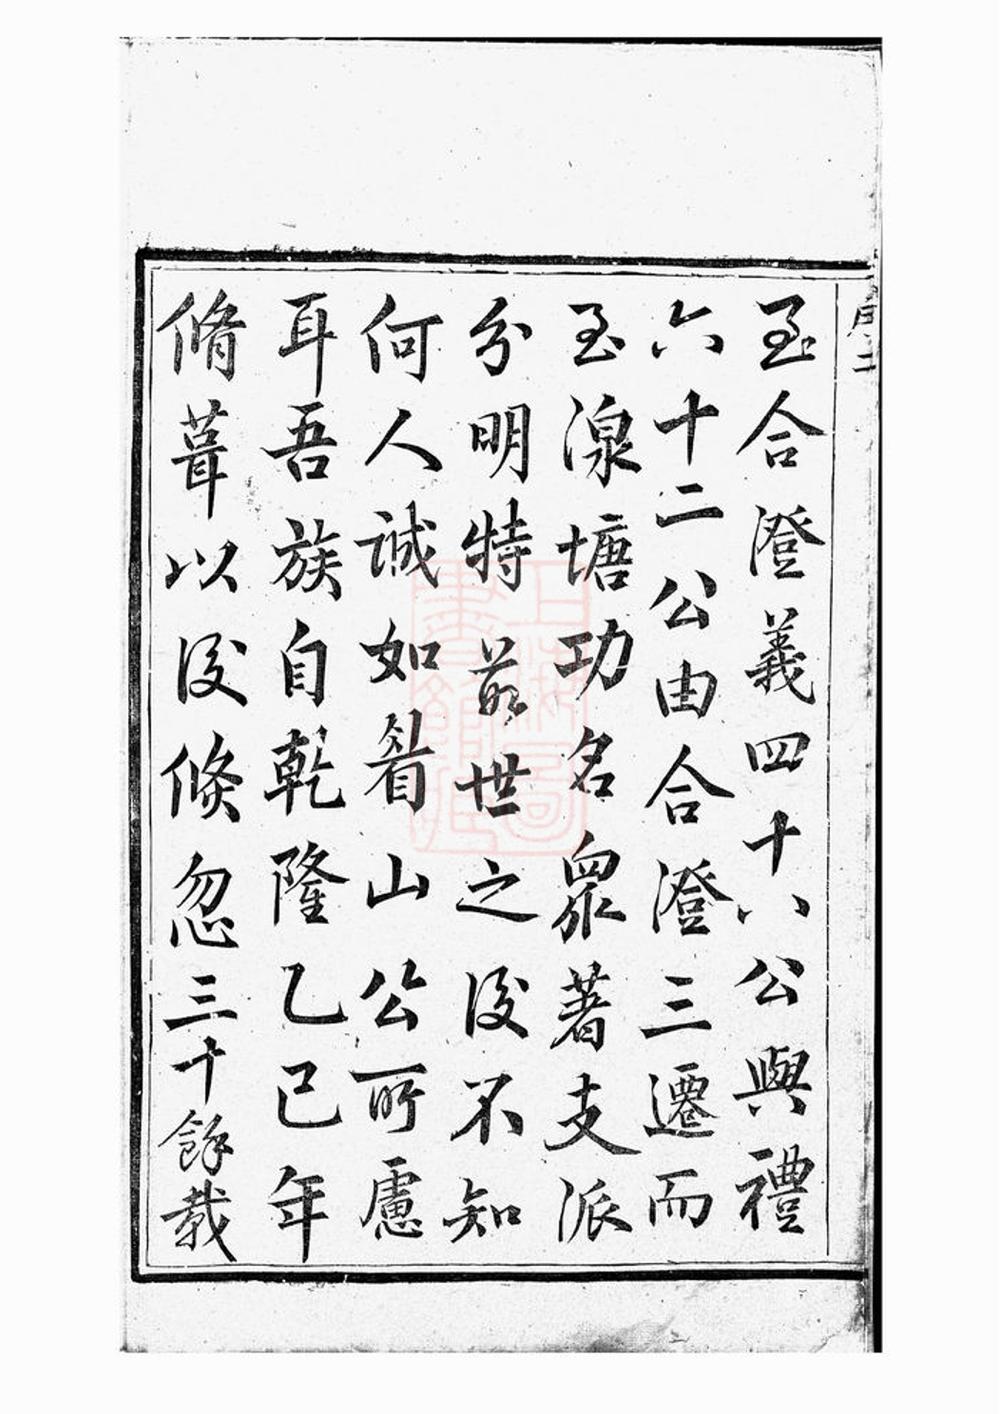 至合澄義四十八公與禮
六十二公由合澄三遷而
至湶塘功名眾著支派
分明特數世之後不知
何人誠如眉山公所慮
耳吾族自乾隆乙巳年
脩葺以後倏忽三十餘載
上海圖書館藏